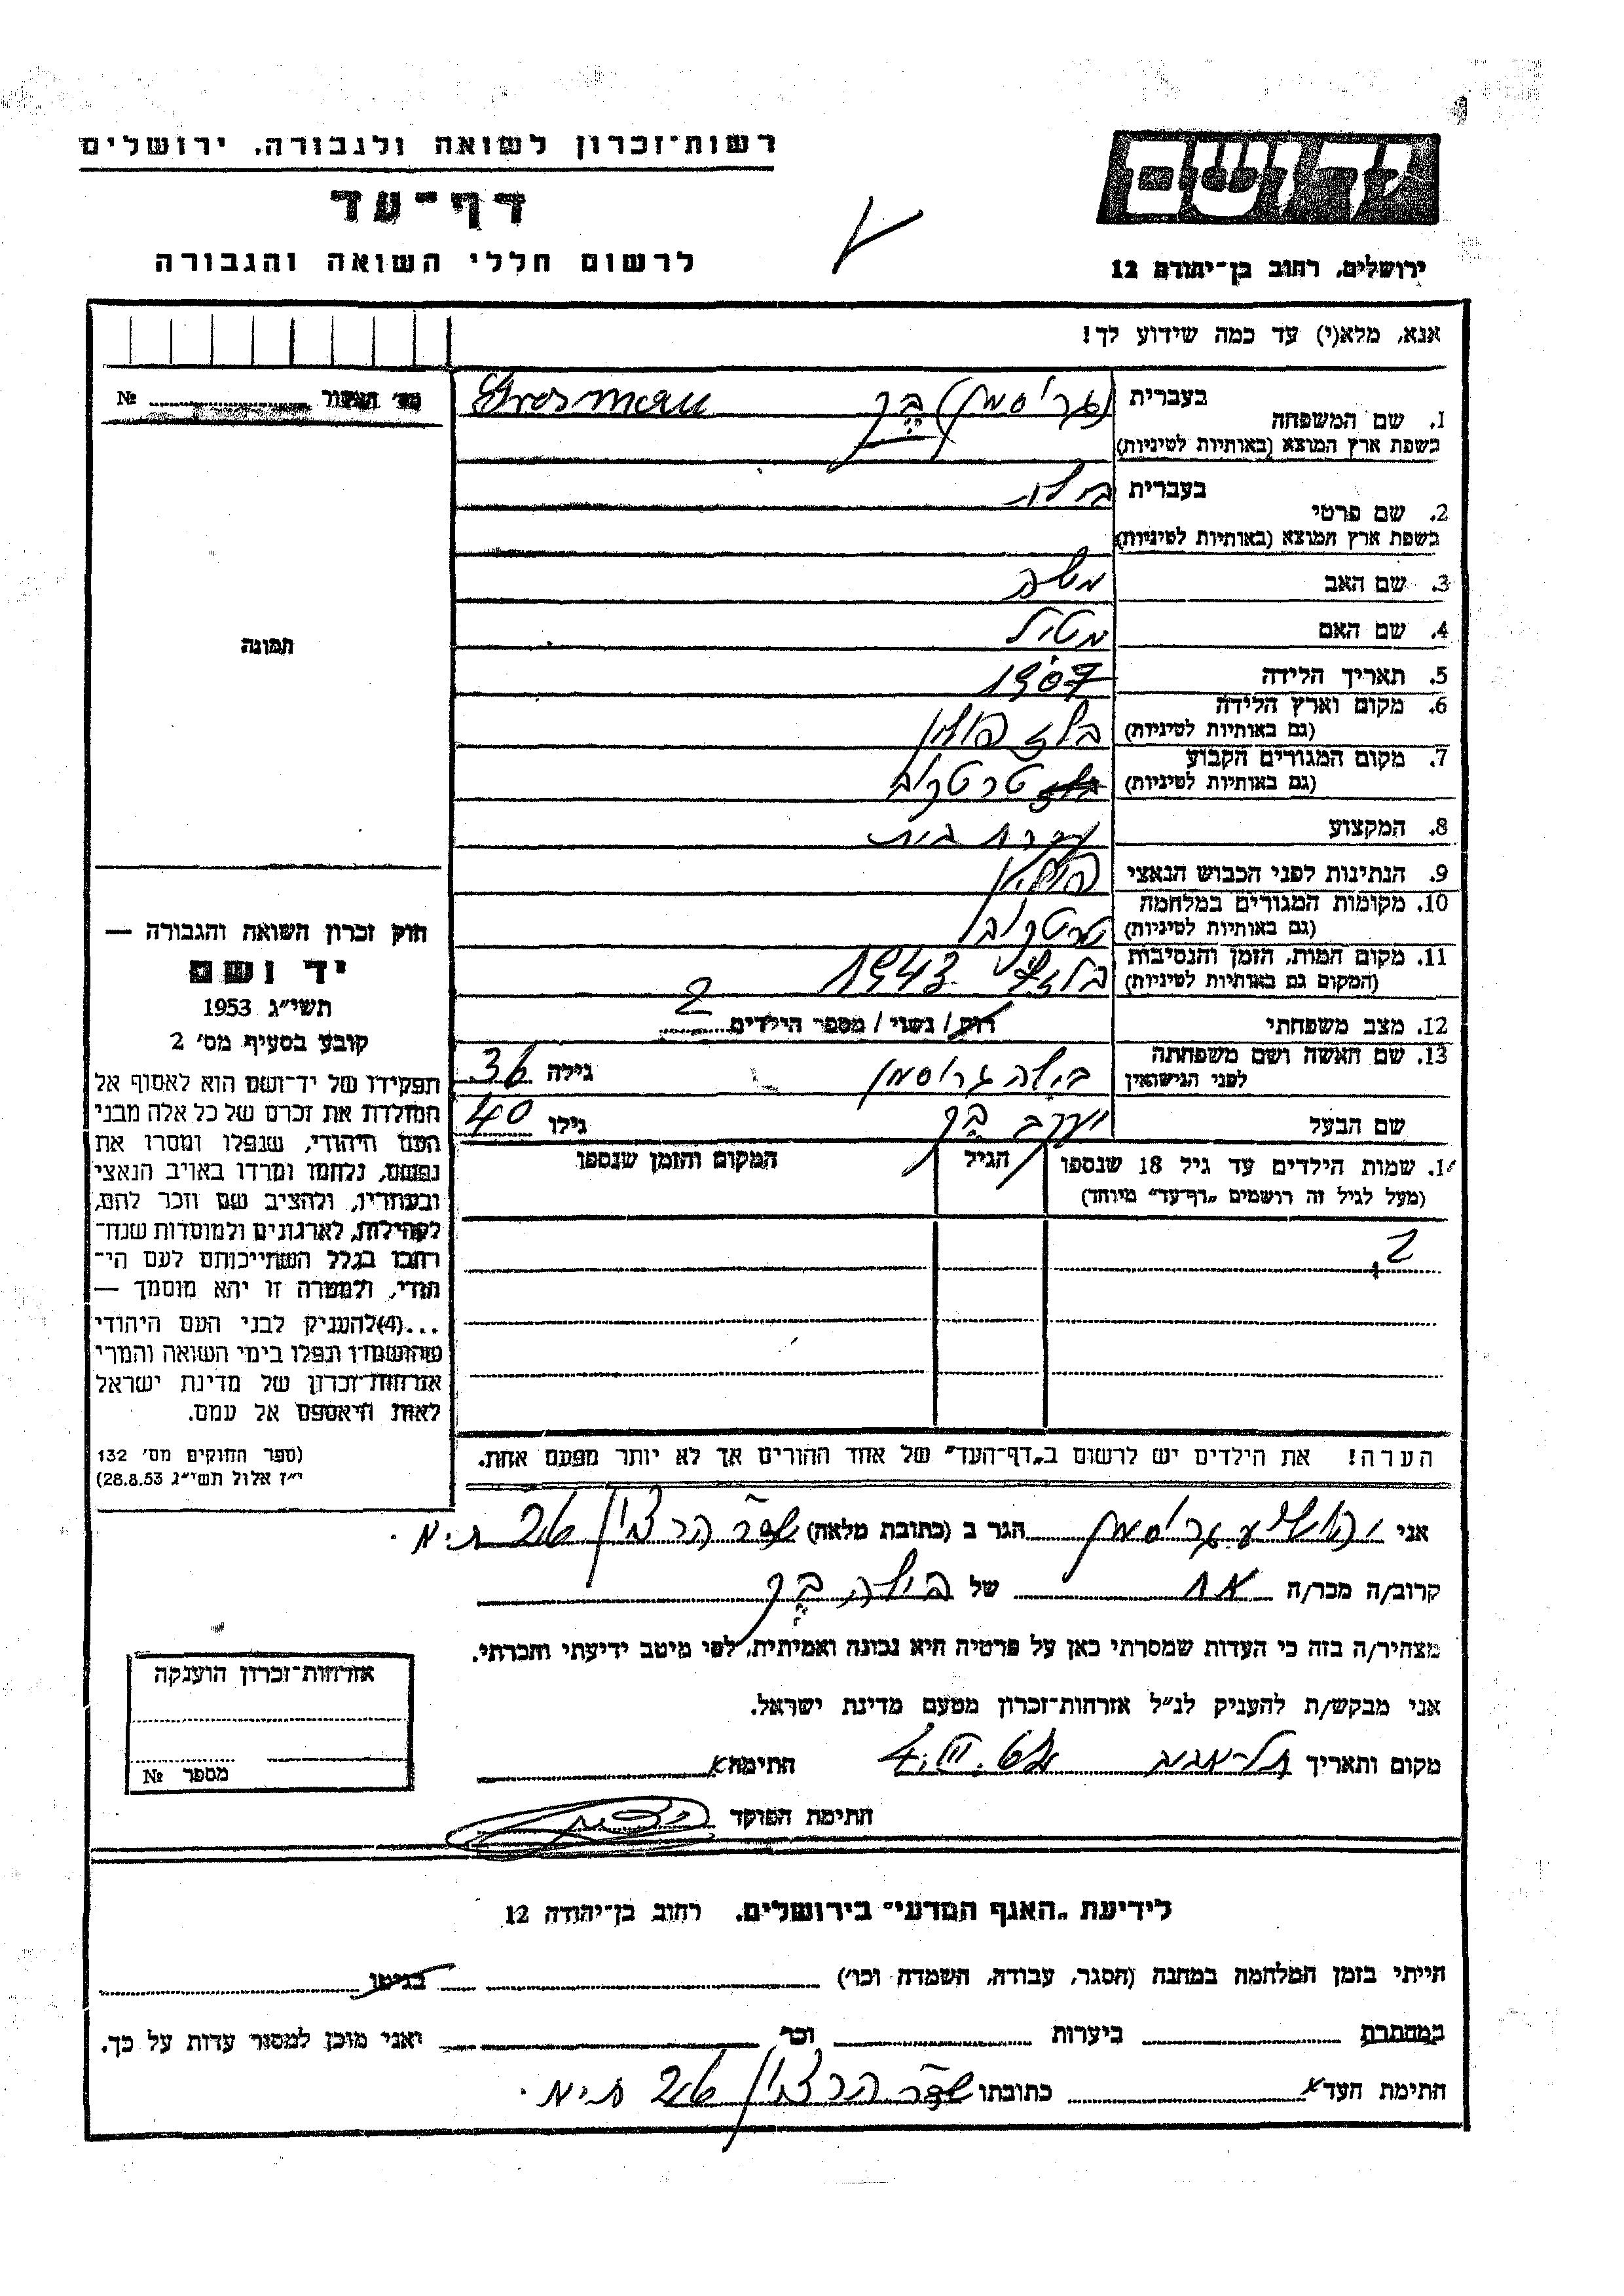 יד ושם
ירושלים, רחוב בן־יהודה 12
רשות־זכרון לשואה ולגבורה, ירושלים
דף־עד
לרשום חללי השואה והגבורה
אנא, מלא(י) עד כמה שידוע לך!
מס׳ האשור № 
1. שם המשפחה בעברית (גרוסמן) בק Grosman
בשפת ארץ המוצא (באותיות לטיניות)
2. שם פרטי בעברית
בשפת ארץ המוצא (באותיות לטיניות)
3. שם האב משה
4. שם האם מטיל
5. תאריך הלידה 1907
6. מקום וארץ הלידה בלז פולין
(גם באותיות לטיניות)
7. מקום המגורים הקבוע טרטקוב
(גם באותיות לטיניות)
8. המקצוע עקרת בית
9. הנתינות לפני הכבוש הנאצי פולין
10. מקומות המגורים במלחמה טרטקוב
(גם באותיות לטיניות)
11. מקום המות, הזמן והנסיבות 1943
(המקום גם באותיות לטיניות)
12. מצב משפחתי רוק / נשוי / מספר הילדים 2
13. שם האשה ושם משפחתה לפני הנישואין בילה גרוסמן גילה 36
שם הבעל יעקב בק גילו 40
14. שמות הילדים עד גיל 18 שנספו הגיל המקום והזמן שנספו
(מעל לגיל זה רושמים „דף־עד” מיוחד)
2
תמונה
חוק זכרון השואה והגבורה —
יד ושם
תשי״ג 1953
קובע בסעיף מס׳ 2
תפקידו של יד־ושם הוא לאסוף אל
המולדת את זכרם של כל אלה מבני
העם היהודי, שנפלו ומסרו את
נפשם, נלחמו ומרדו באויב הנאצי
ובעוזריו, ולהציב שם וזכר להם,
לקהילות, לארגונים ולמוסדות שנח־
רבו בגלל השתייכותם לעם הי־
הודי, ולמטרה זו יהא מוסמך —
...(4)להעניק לבני העם היהודי
שהושמדו ונפלו בימי השואה והמרי
אזרחות־זכרון של מדינת ישראל
לאות היאספם אל עמם.
(ספר החוקים מס׳ 132
י״ז אלול תשי״ג 28.8.53)
הערה! את הילדים יש לרשום ב„דף־העד” של אחד ההורים אך לא יותר מפעם אחת.
אני יהושע גרוסמן הגר ב (כתובת מלאה) שד׳ הר ציון 26 ת״א.
קרוב/ה מכר/ה אח של בילה בק
מצהיר/ה בזה כי העדות שמסרתי כאן על פרטיה היא נכונה ואמיתית, לפי מיטב ידיעתי והכרתי.
אני מבקש/ת להעניק לנ״ל אזרחות־זכרון מטעם מדינת ישראל.
מקום ותאריך תל־אביב 4.III.62 חתימה
חתימת הפוקד
אזרחות־זכרון הוענקה
מספר №
לידיעת „האגף המדעי” בירושלים, רחוב בן־יהודה 12
הייתי בזמן המלחמה במחנה (הסגר, עבודה, השמדה וכו׳) בגיטו
במחתרת ביערות וכו׳ ואני מוכן למסור עדות על כך.
חתימת העד כתובתו שד׳ הר ציון 26 ת״א.